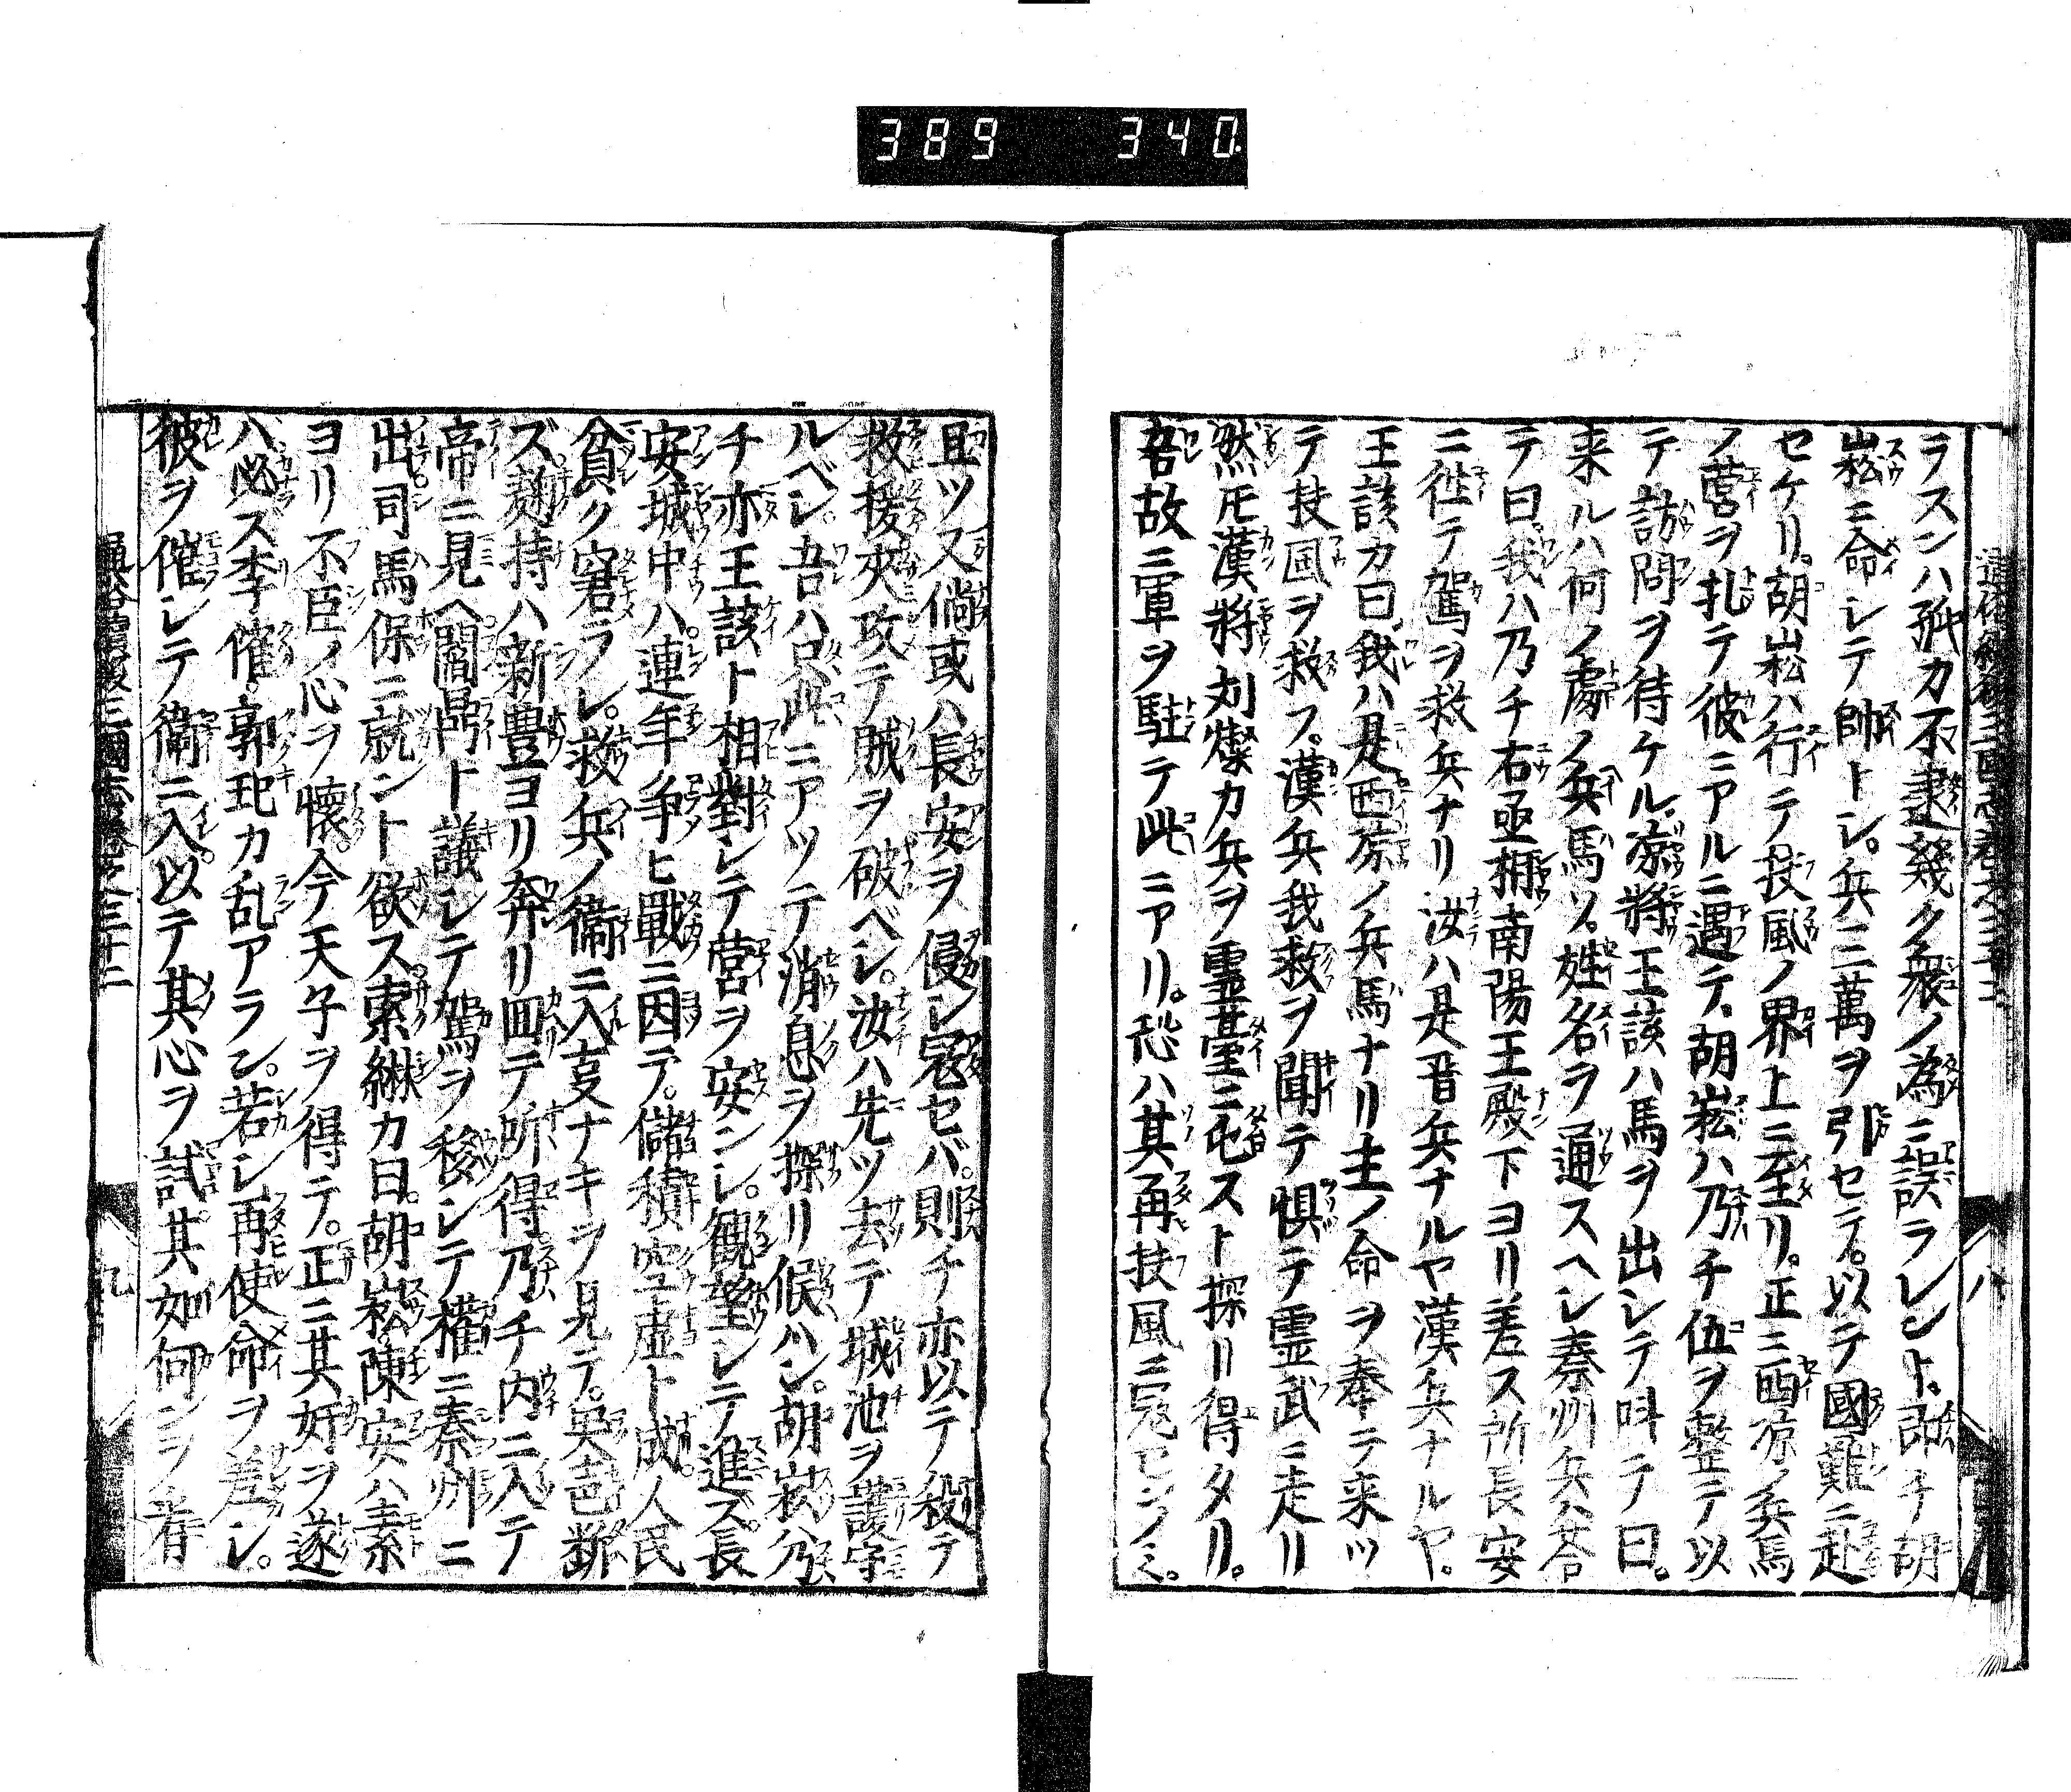 389 340
ラスンハ孤カ不逮幾ク衆ノ為ニ誤ラレント。謝チ胡
崧ニ命レテ帥トレ。兵三萬ヲ引セテ。以テ國難ニ赴
セケリ。胡崧ハ行テ技風ノ界上ニ至リ。正ニ西凉ノ兵馬
ノ營ヲ扎テ彼ニアルニ遇テ、胡崧ハ乃チ伍ヲ整テ以
テ訪問ヲ待ケル。凉將王該ハ馬ヲ出レテ呌テ曰。
来ルハ何ノ處ノ兵馬ソ。姓名ヲ通スヘレ秦州兵ハ荅
テ曰。我ハ乃チ右丞相南陽王殿下ヨリ差ス所長安
ニ徃テ駕ヲ救兵ナリ汝ハ是晋兵ナルヤ漢兵ナルヤ。
王該カ曰。我ハ是西凉ノ兵馬ナリ主ノ命ヲ奉テ来ツ
テ技風ヲ救フ。漢兵我救ヲ聞テ惧テ霊武ニ走リ
然𪜈漢將刘燦カ兵ヲ霊臺ニ屯スト探リ得タリ。
吾故ニ軍ヲ駐テ此ニアリ。恐ハ其再技風ニ冦センノミ。
通俗續後三國志卷之三十二
八
且ツ又倘或ハ長安ヲ侵レ冦セバ。則チ亦以テ殺テ
救援夾攻テ賊ヲ破ベレ。汝ハ先ツ去テ城池ヲ護守
ルベレ。吾ハ只此ニアツテ消息ヲ探リ候ハン。胡崧乃
チ亦王該ト相對レテ營ヲ安ンレ。觀望レテ進ズ。長
安城中ハ。連年ノ争ヒ戰ニ因テ。儲積空虚ト成。人民
貧ク窘ラレ。救兵ノ衞ニ入夋ナキヲ見テ。吴邑断
ズ。麹持ハ新豊ヨリ奔リ囬テ听得。乃チ内ニ入テ
帝ニ見ヘ。閻鼎ト議レテ駕ヲ移レテ權ニ秦州ニ
出。司馬保ニ就ント欲ス。索綝カ曰。胡崧陳安ハ素
ヨリ不臣ノ心ヲ懐。今天子ヲ得テ。正ニ其奸ヲ遂
ハ。必ス李傕。郭玘カ乱アラン。若レ再使命ヲ差レ。
彼ヲ催レテ衞ニ入。以テ其心ヲ試。其如何ンヲ看
通俗續後三國志卷之三十二
九